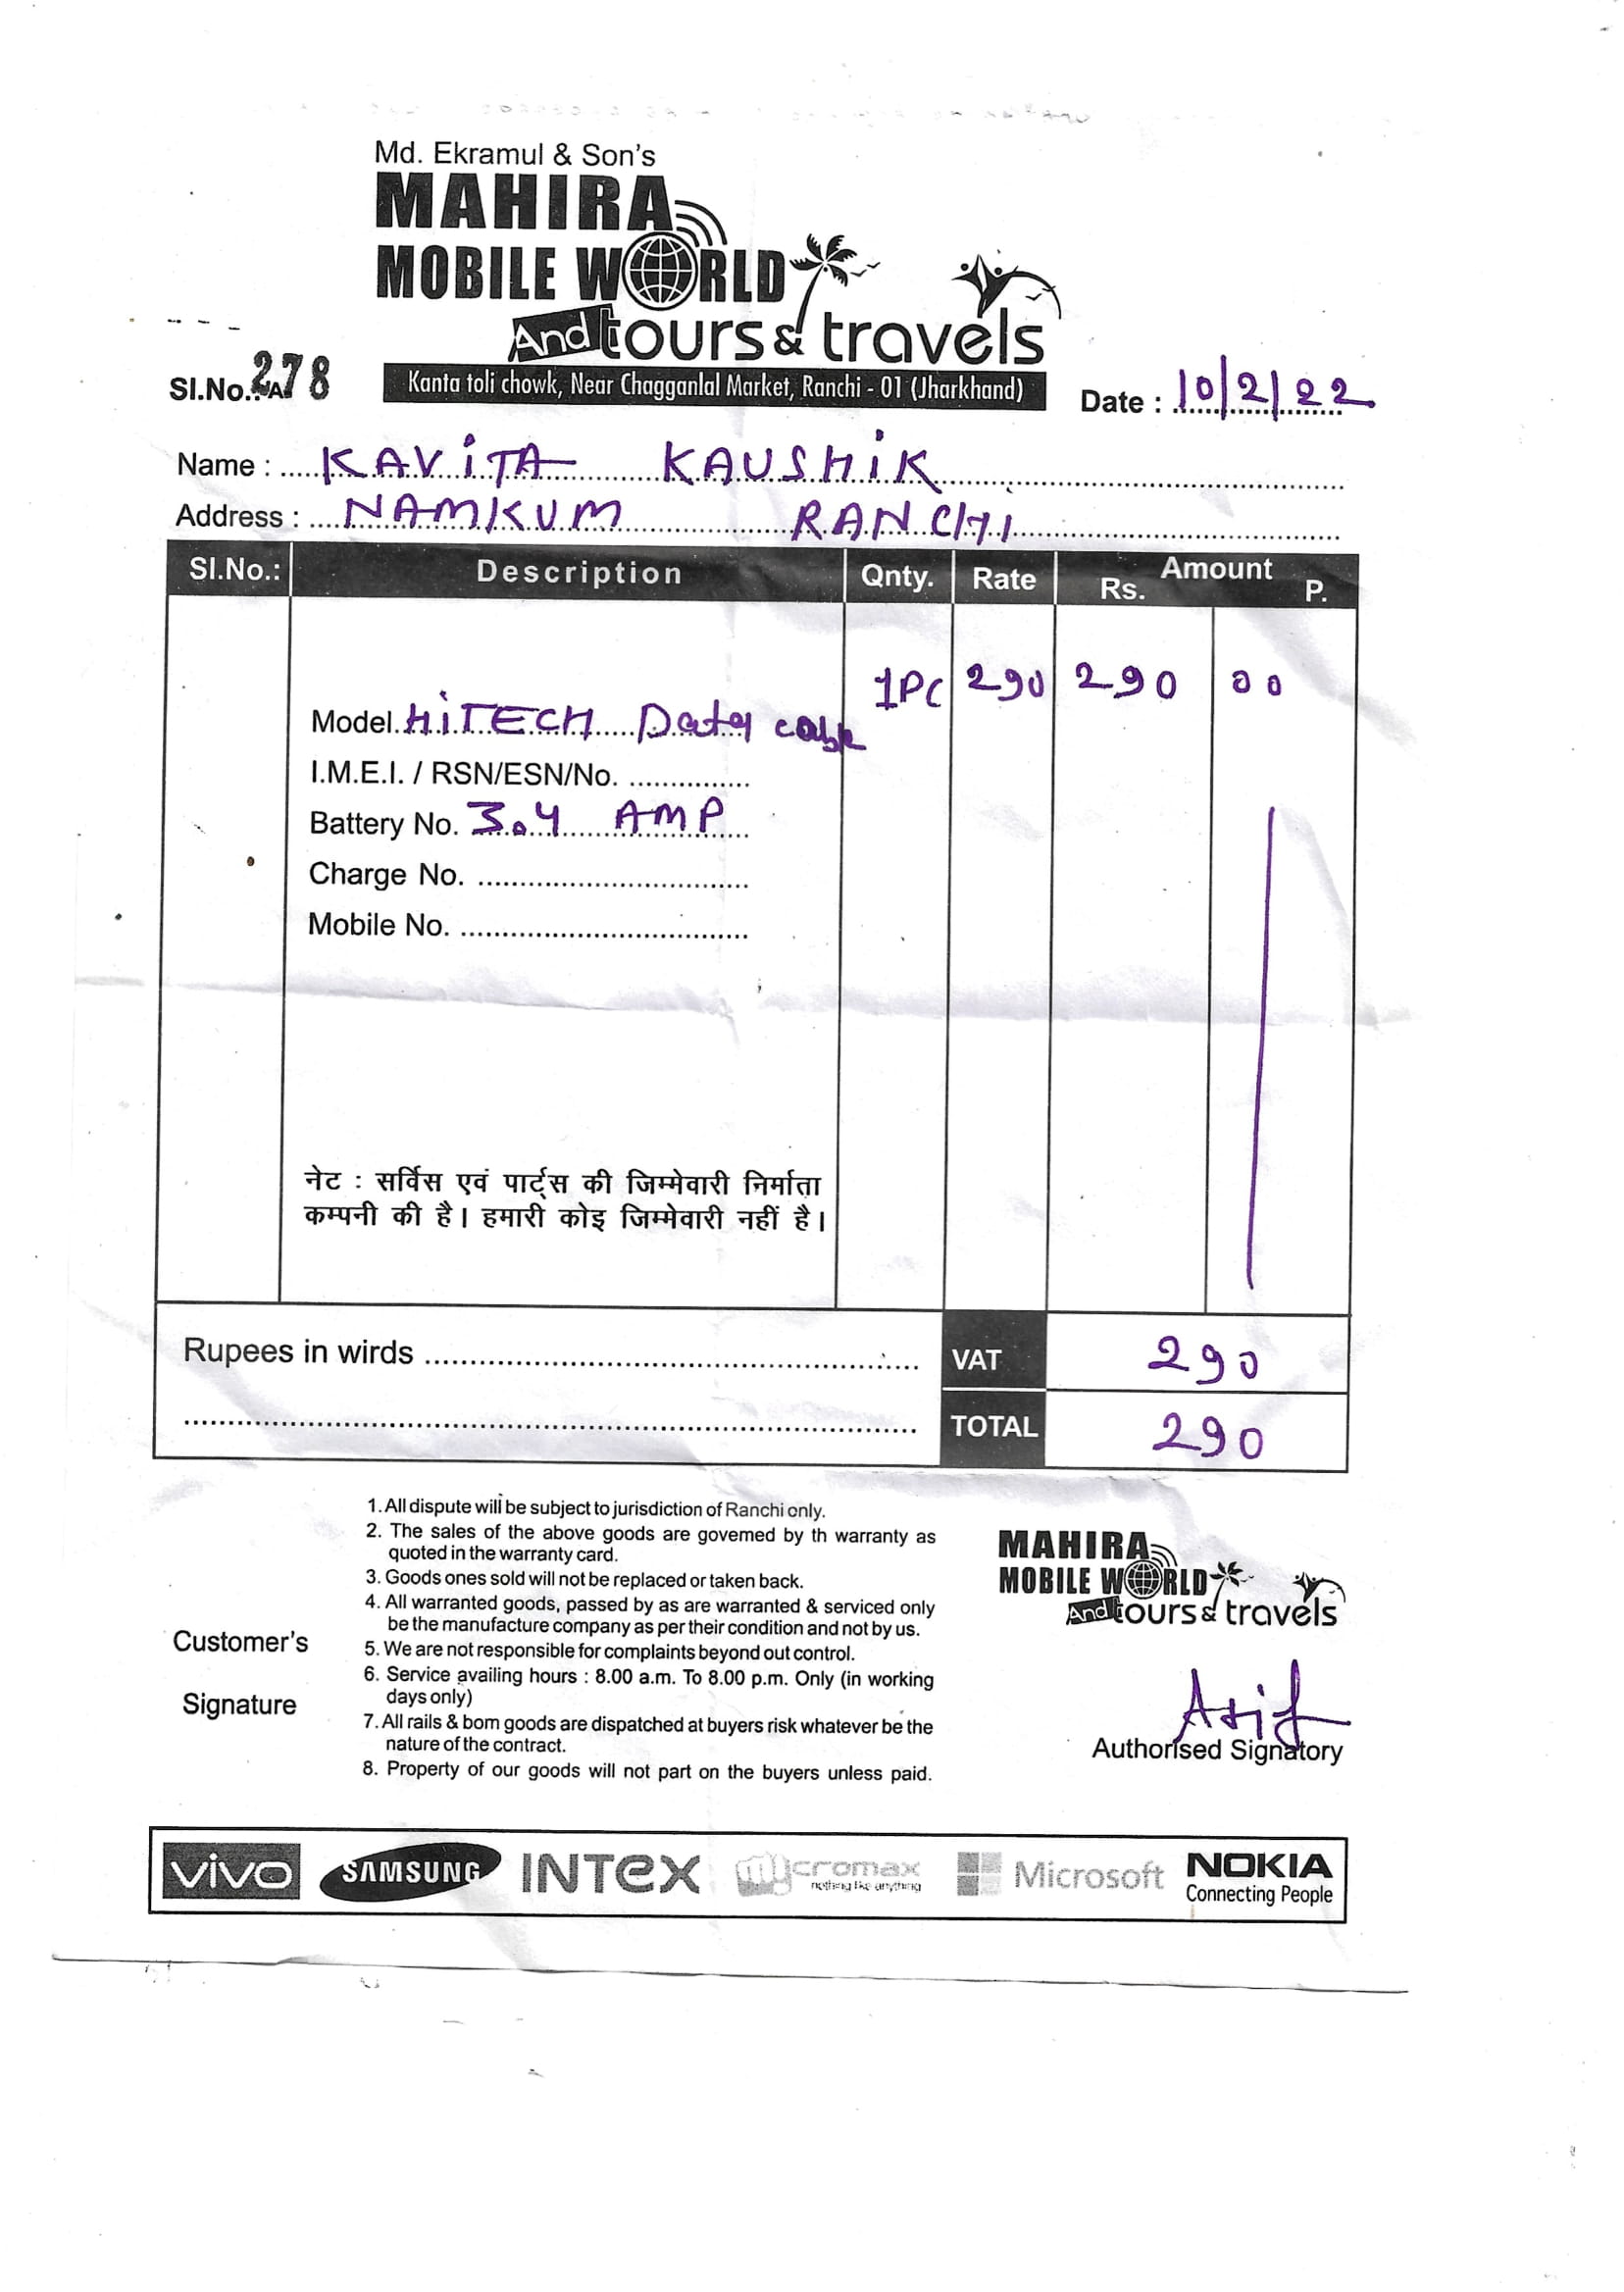 Md. Ekramul & Son's
MAHIRA
MOBILE WORLD
And tours & travels
Kanta toli chowk, Near Chagganlal Market, Ranchi - 01 (Jharkhand)
Sl.No. 278
Date : 10/2/22
Name : KAViTA KAUSHiK
Address : NAMKUM RANCHI
Sl.No.: Description Qnty. Rate Amount Rs. P.
1PC 290 290 00
Model. HiTECH Data cable
I.M.E.I. / RSN/ESN/No.
Battery No. 3.4 AMP
Charge No.
Mobile No.
नेट : सर्विस एवं पार्ट्स की जिम्मेवारी निर्माता
कम्पनी की है। हमारी कोइ जिम्मेवारी नहीं है।
Rupees in wirds VAT 290
TOTAL 290
1. All dispute will be subject to jurisdiction of Ranchi only.
2. The sales of the above goods are govemed by th warranty as
quoted in the warranty card.
3. Goods ones sold will not be replaced or taken back.
4. All warranted goods, passed by as are warranted & serviced only
be the manufacture company as per their condition and not by us.
5. We are not responsible for complaints beyond out control.
6. Service availing hours : 8.00 a.m. To 8.00 p.m. Only (in working
days only)
7. All rails & bom goods are dispatched at buyers risk whatever be the
nature of the contract.
8. Property of our goods will not part on the buyers unless paid.
Customer's
Signature
MAHIRA
MOBILE WORLD
And tours & travels
Asif
Authorised Signatory
vivo SAMSUNG INTEX mycromax nothing like anything Microsoft NOKIA Connecting People